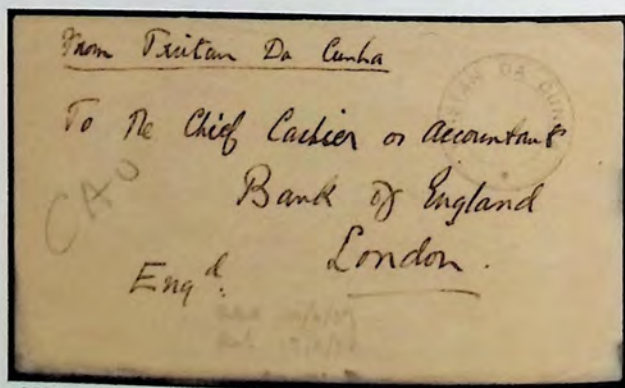 From Tristan Da Cunha
TRISTAN DA CUNHA
To The Chief Cashier or Accountant
CAO
Bank of England
London.
Eng d.